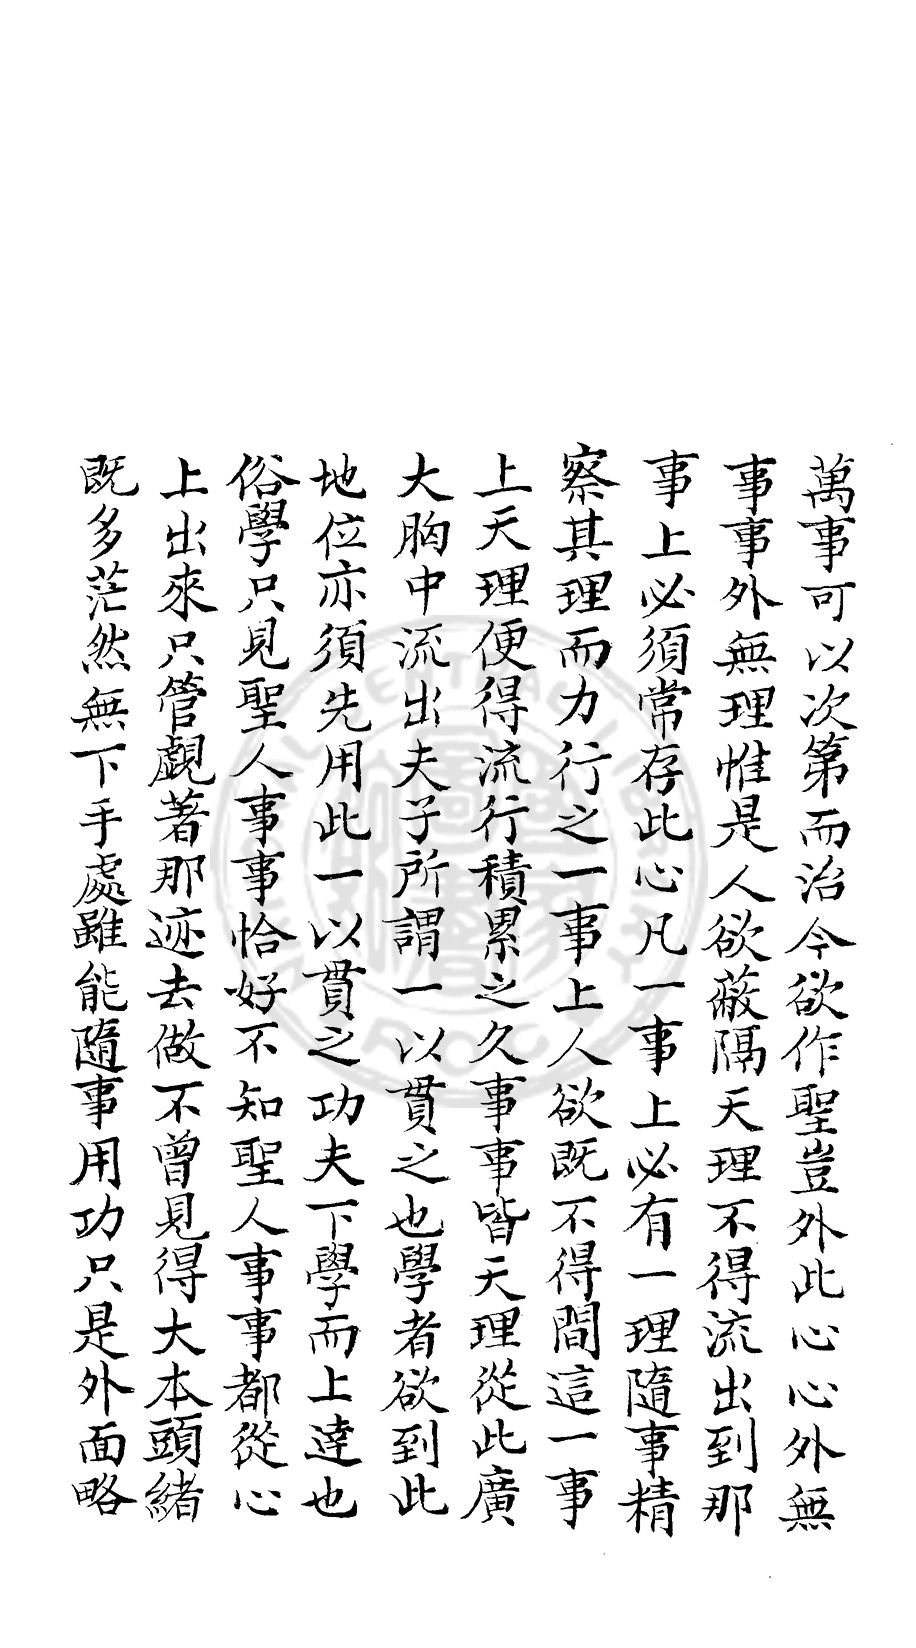 萬事可以次第而治今欲作聖豈外此心心外無
事事外無理惟是人欲蔽隔天理不得流出到那
事上必須常存此心凡一事上必有一理隨事精
察其理而力行之一事上人欲既不得間這一事
上天理便得流行積累之久事事皆天理從此廣
大胸中流出夫子所謂一以貫之也學者欲到此
地位亦須先用此一以貫之功夫下學而上達也
俗學只見聖人事事恰好不知聖人事事都從心
上出來只管覷著那迹去做不曾見得大本頭緒
既多茫然無下手處雖能隨事用功只是外面略